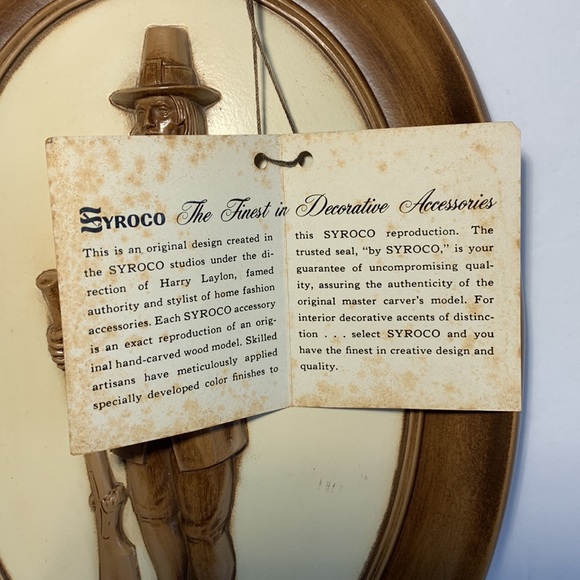 SYROCO The Finest in Decorative Accessories
This is an original design created in
the SYROCO studios under the di-
rection of Harry Laylon, famed
authority and stylist of home fashion
accessories. Each SYROCO accessory
is an exact reproduction of an orig-
inal hand-carved wood model. Skilled
artisans have meticulously applied
specially developed color finishes to
this SYROCO reproduction. The
trusted seal, “by SYROCO,” is your
guarantee of uncompromising qual-
ity, assuring the authenticity of the
original master carver’s model. For
interior decorative accents of distinc-
tion . . . select SYROCO and you
have the finest in creative design and
quality.